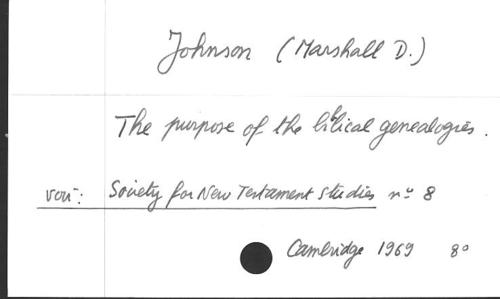 Johnson (Marshall D.)
The purpose of the biblical genealogies.
voir: Society for New Testament studies nº 8
Cambridge 1969 8º